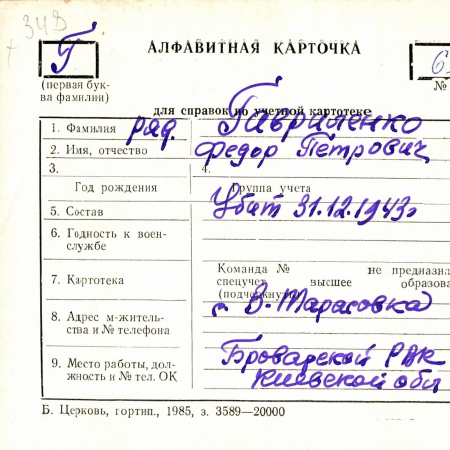 Г
АЛФАВИТНАЯ КАРТОЧКА
(первая бук-
ва фамилии)
№
для справок по учетной картотеке
1. Фамилия ряд. Гавриленко
2. Имя, отчество Федор Петрович
3.
4.
Год рождения
Группа учета
5. Состав Убит 31.12.1943г
6. Годность к воен-
службе
Команда № не предназна
7. Картотека спецучет высшее образова
(подчеркнуть)
с В-Тарасовка
8. Адрес м-житель-
ства и № телефона
Броварской РВК
9. Место работы, дол-
жность и № тел. ОК
Киевской обл
Б. Церковь, гортип., 1985, з. 3589—20000